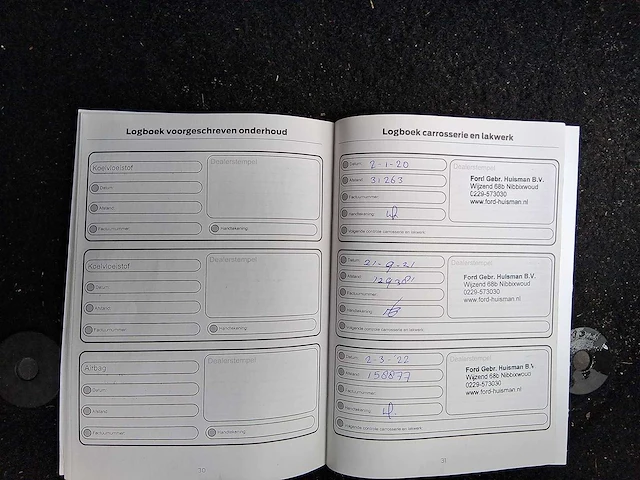 Logboek voorgeschreven onderhoud
Koelvloeistof
Dealerstempel
Datum
Afstand
Factuurnummer
Handtekening
Koelvloeistof
Dealerstempel
Datum
Afstand
Factuurnummer
Handtekening
Airbag
Dealerstempel
Datum
Afstand
Factuurnummer
Handtekening
30
Logboek carrosserie en lakwerk
Datum 2-1-20
Afstand 31263
Factuurnummer
Handtekening
Volgende controle carrosserie en lakwerk
Dealerstempel
Ford Gebr. Huisman B.V.
Wijzend 68b Nibbixwoud
0229-573030
www.ford-huisman.nl
Datum 21-9-21
Afstand 129381
Factuurnummer
Handtekening
Volgende controle carrosserie en lakwerk
Dealerstempel
Ford Gebr. Huisman B.V.
Wijzend 68b Nibbixwoud
0229-573030
www.ford-huisman.nl
Datum 2-3-'22
Afstand 158877
Factuurnummer
Handtekening
Volgende controle carrosserie en lakwerk
Dealerstempel
Ford Gebr. Huisman B.V.
Wijzend 68b Nibbixwoud
0229-573030
www.ford-huisman.nl
31